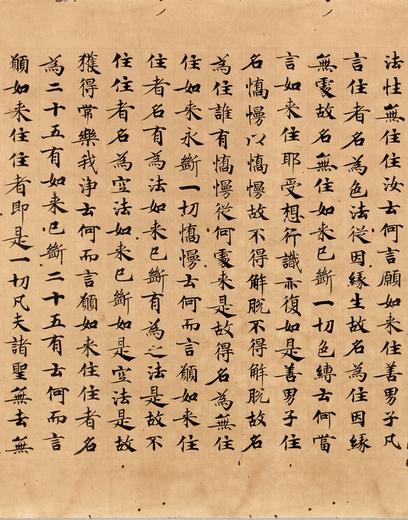 法性無住住汝云何言願如来住善男子凡
言住者名為色法従因緣生故名為住因緣
無處故名無住如来已斷一切色縛云何當
言如来住耶受想行識亦復如是善男子住
名憍慢以憍慢故不得解脫不得解脫故名
為住誰有憍慢従何處来是故得名為無住
住如来永斷一切憍慢云何而言願如来住
住者名有為法如来已斷有為之法是故不
住住者名為空法如来已斷如是空法是故
獲得常樂我淨云何而言願如来住住者名
為二十五有如来已斷二十五有云何而言
願如来住住者即是一切凡夫諸聖無去無